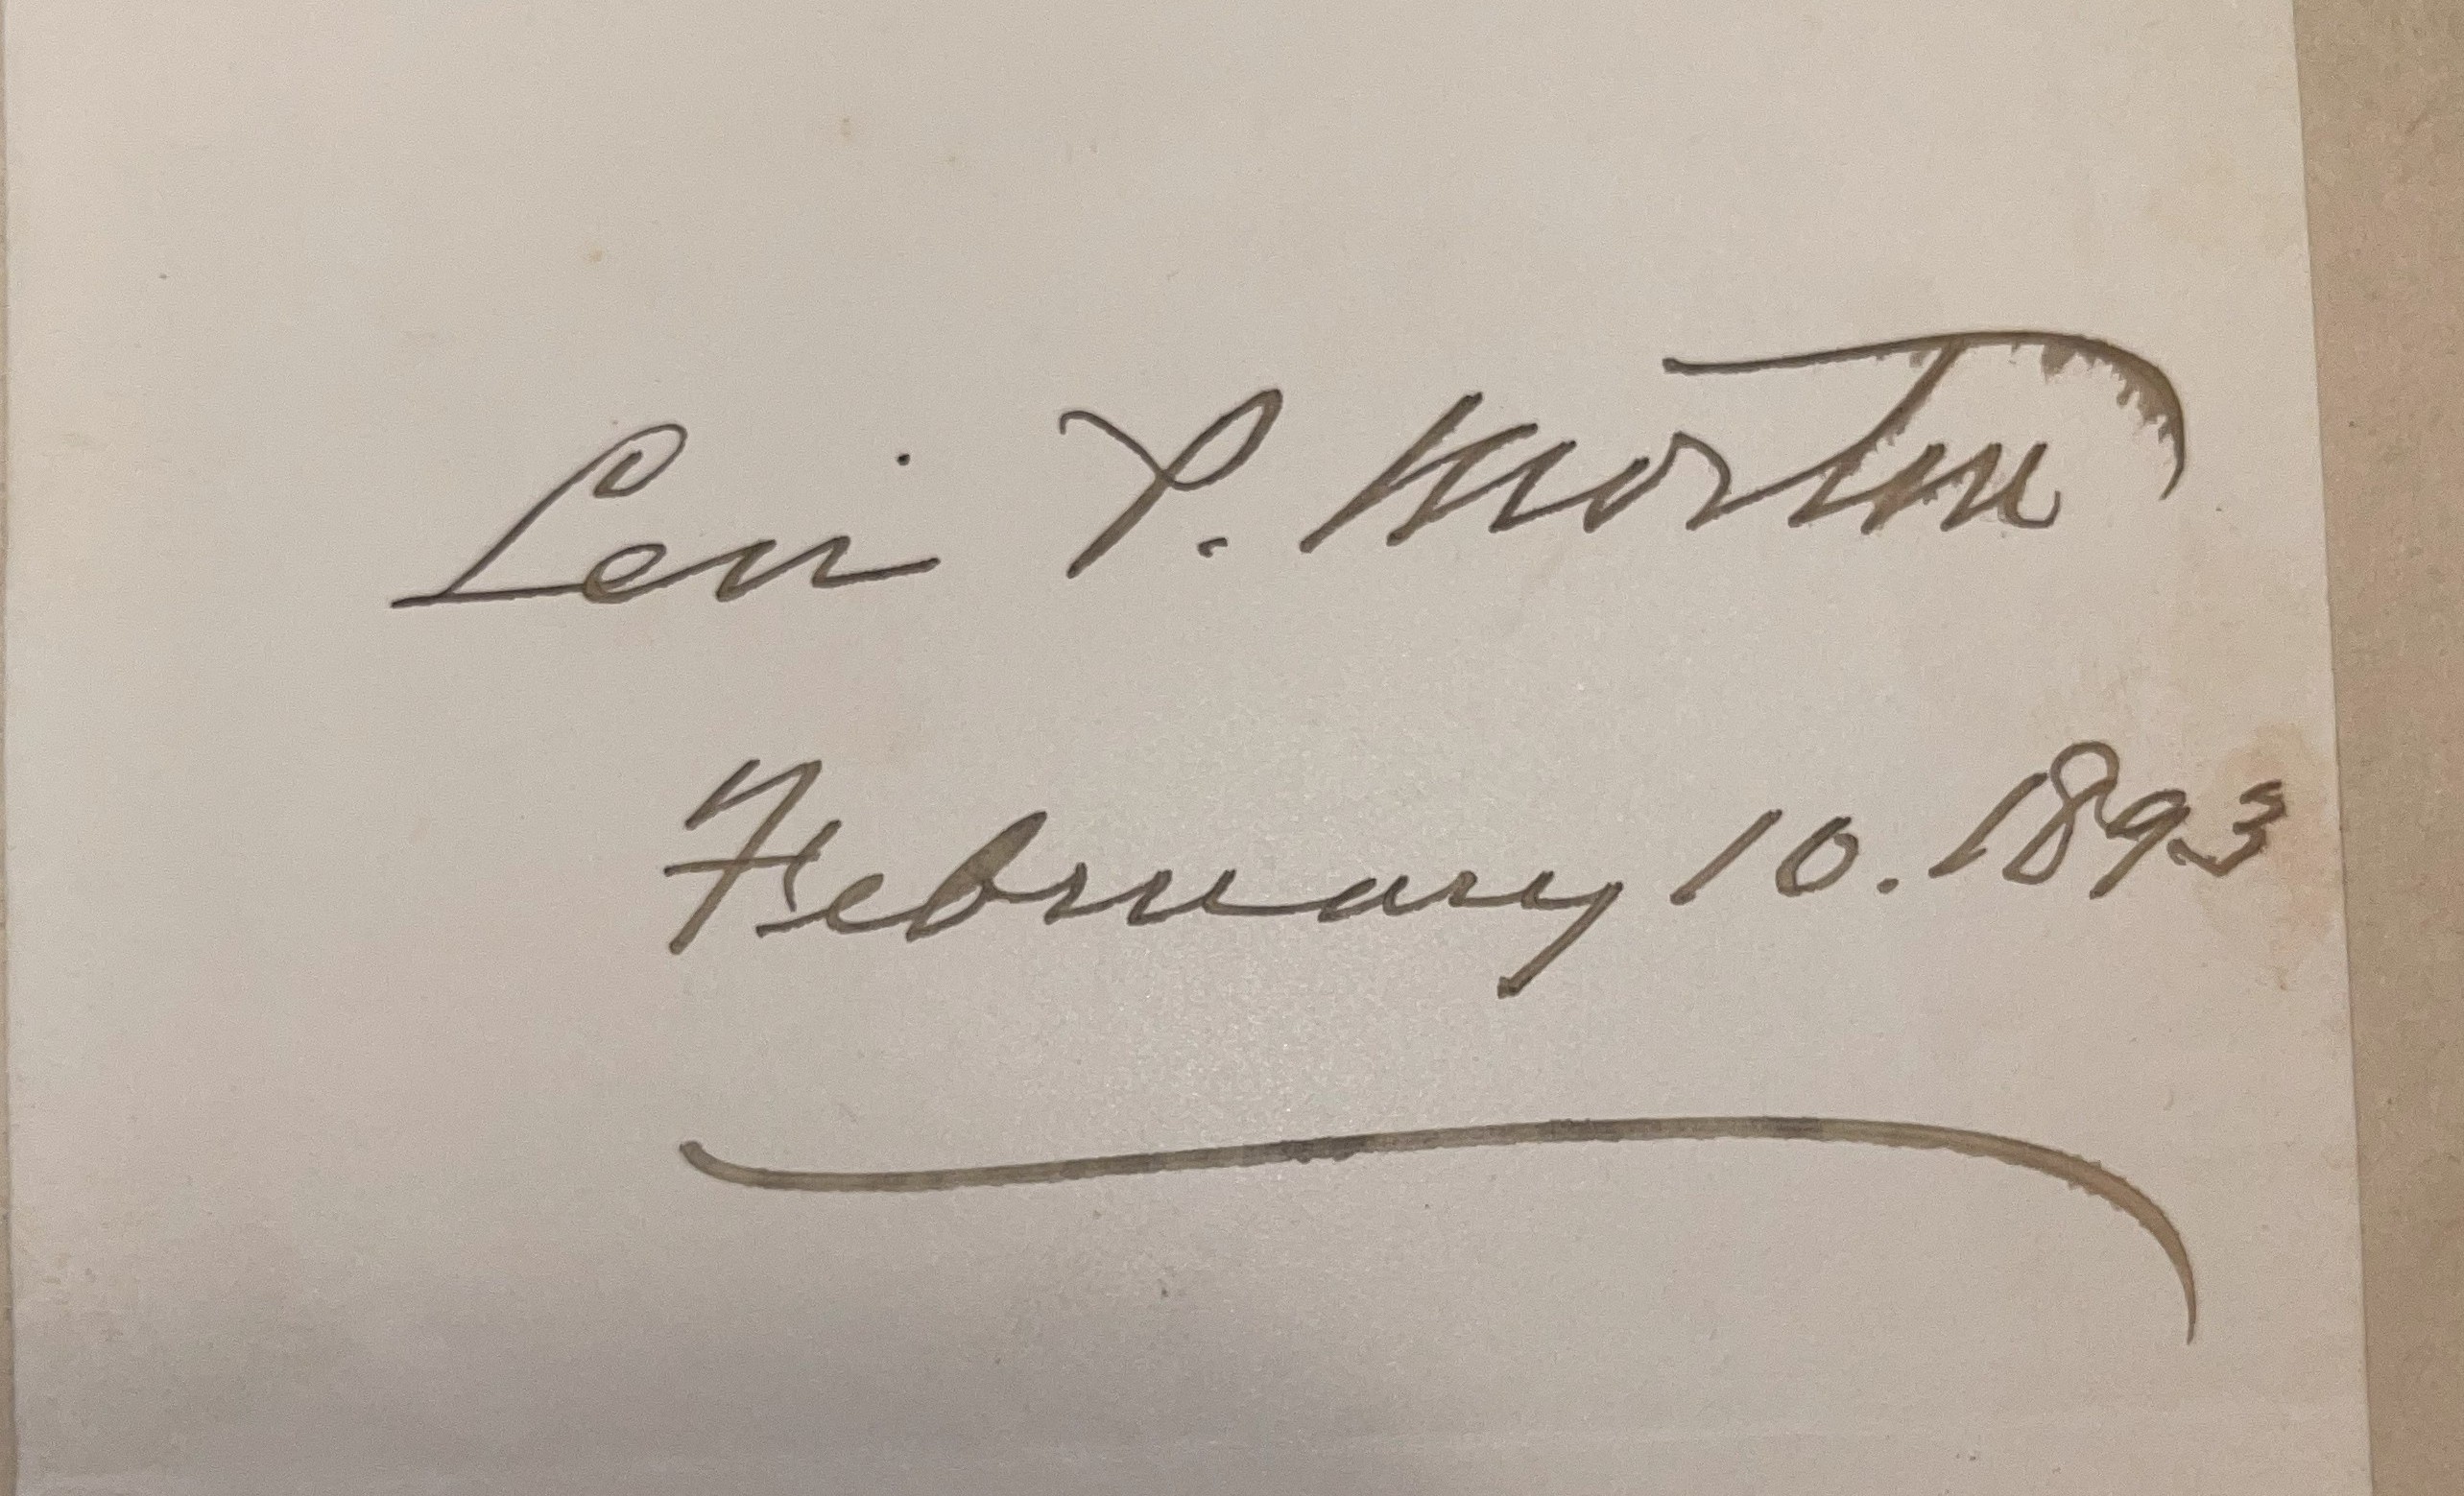 Levi P. Morton
February 10. 1893